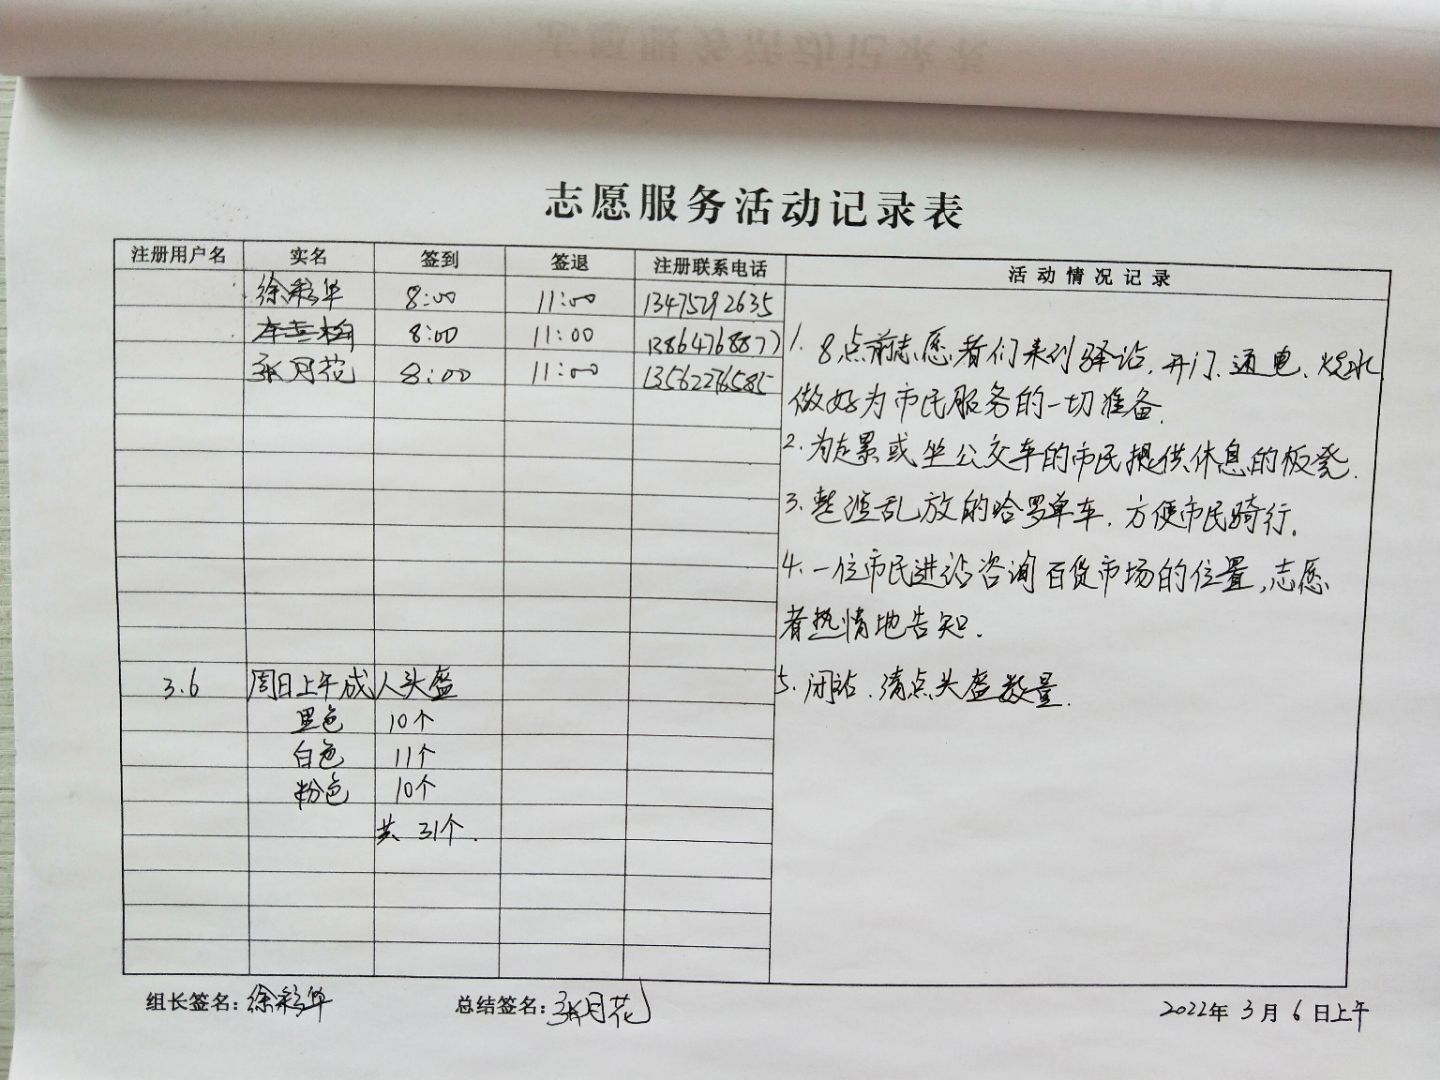 志愿服务活动记录表
注册用户名 实名 签到 签退 注册联系电话 活动情况记录
徐彩华 8:00 11:00 13475292635
8:00 11:00 13864768877
张月花 8:00 11:00 13562276585
1. 8点前志愿者们来到驿站,开门、通电、烧水
做好为市民服务的一切准备.
2.为走累或坐公交车的市民提供休息的板凳.
3.整理乱放的哈罗单车.方便市民骑行.
4.一位市民进站咨询百货市场的位置,志愿
者热情地告知.
5.闭站.清点头盔数量.
3.6 周日上午成人头盔
黑色 10个
白色 11个
粉色 10个
共 31个.
组长签名:徐彩华 总结签名:张月花 2022年3月6日上午